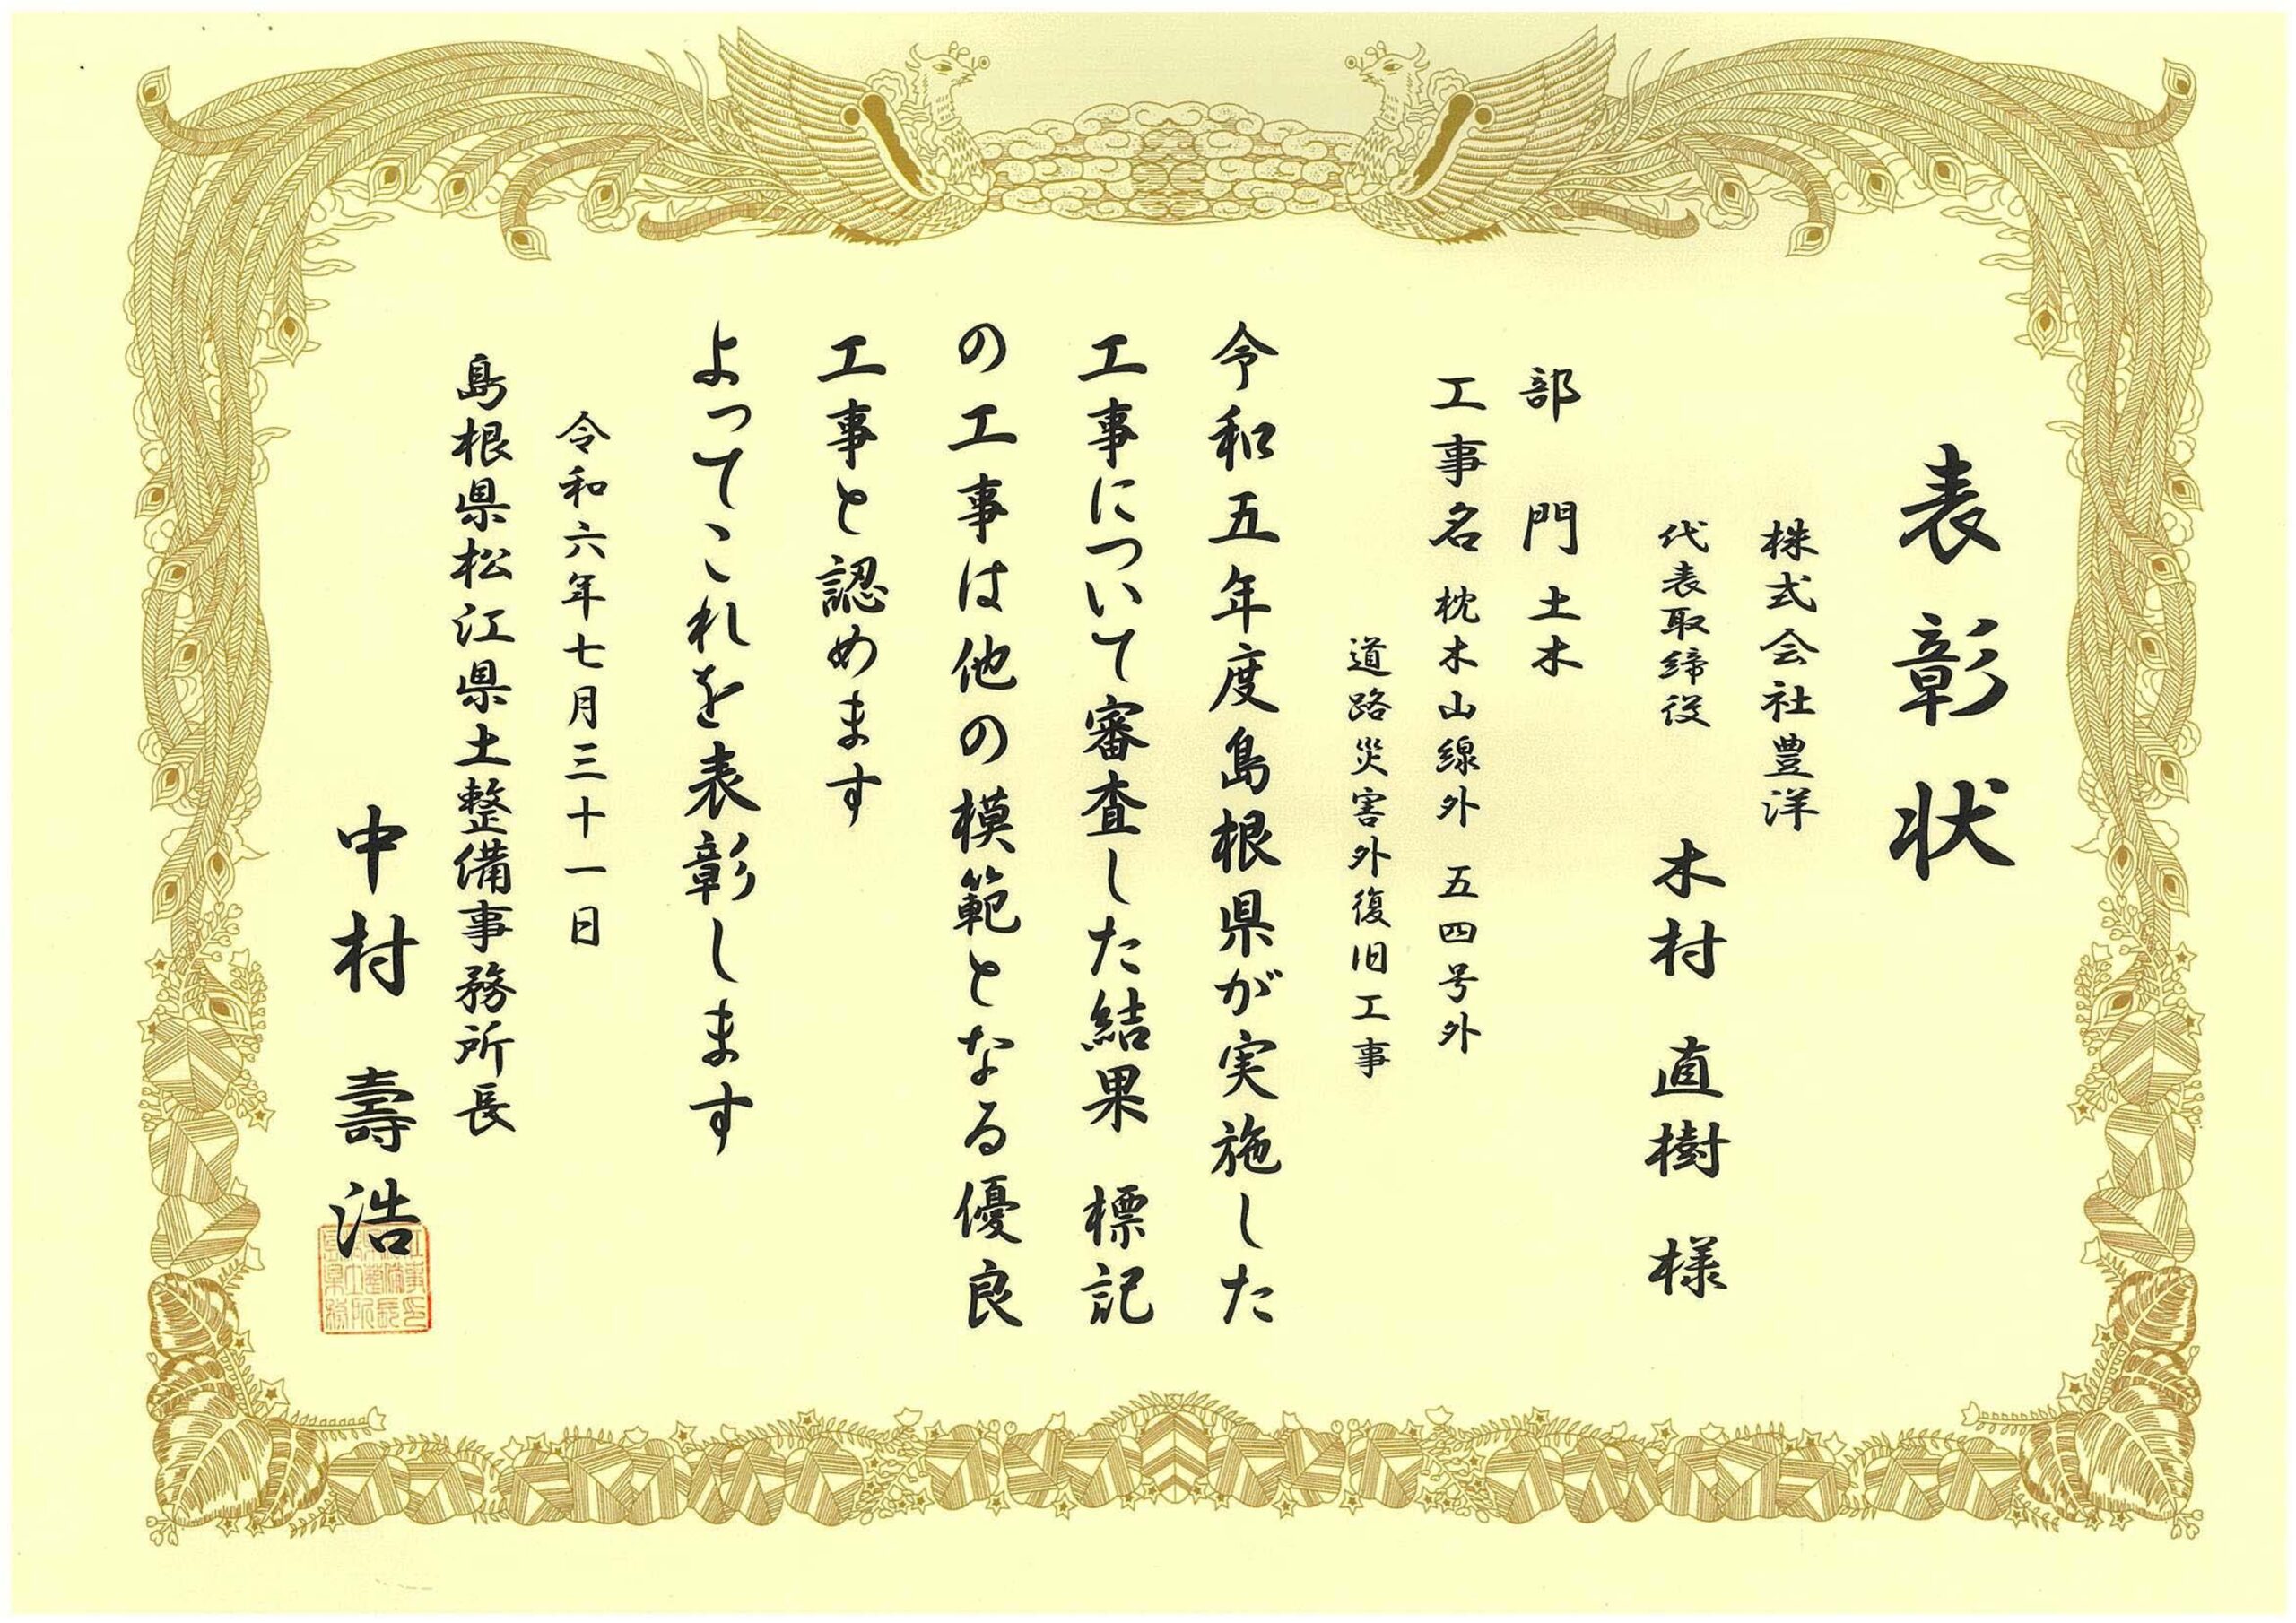 表彰状
株式会社豊洋
代表取締役 木村 直樹 様
部 門 土木
工事名 枕木山線外 五四号外
道路災害外復旧工事
令和五年度島根県が実施した
工事について審査した結果 標記
の工事は他の模範となる優良
工事と認めます
よってこれを表彰します
令和六年七月三十一日
島根県松江県土整備事務所長
中村 壽浩